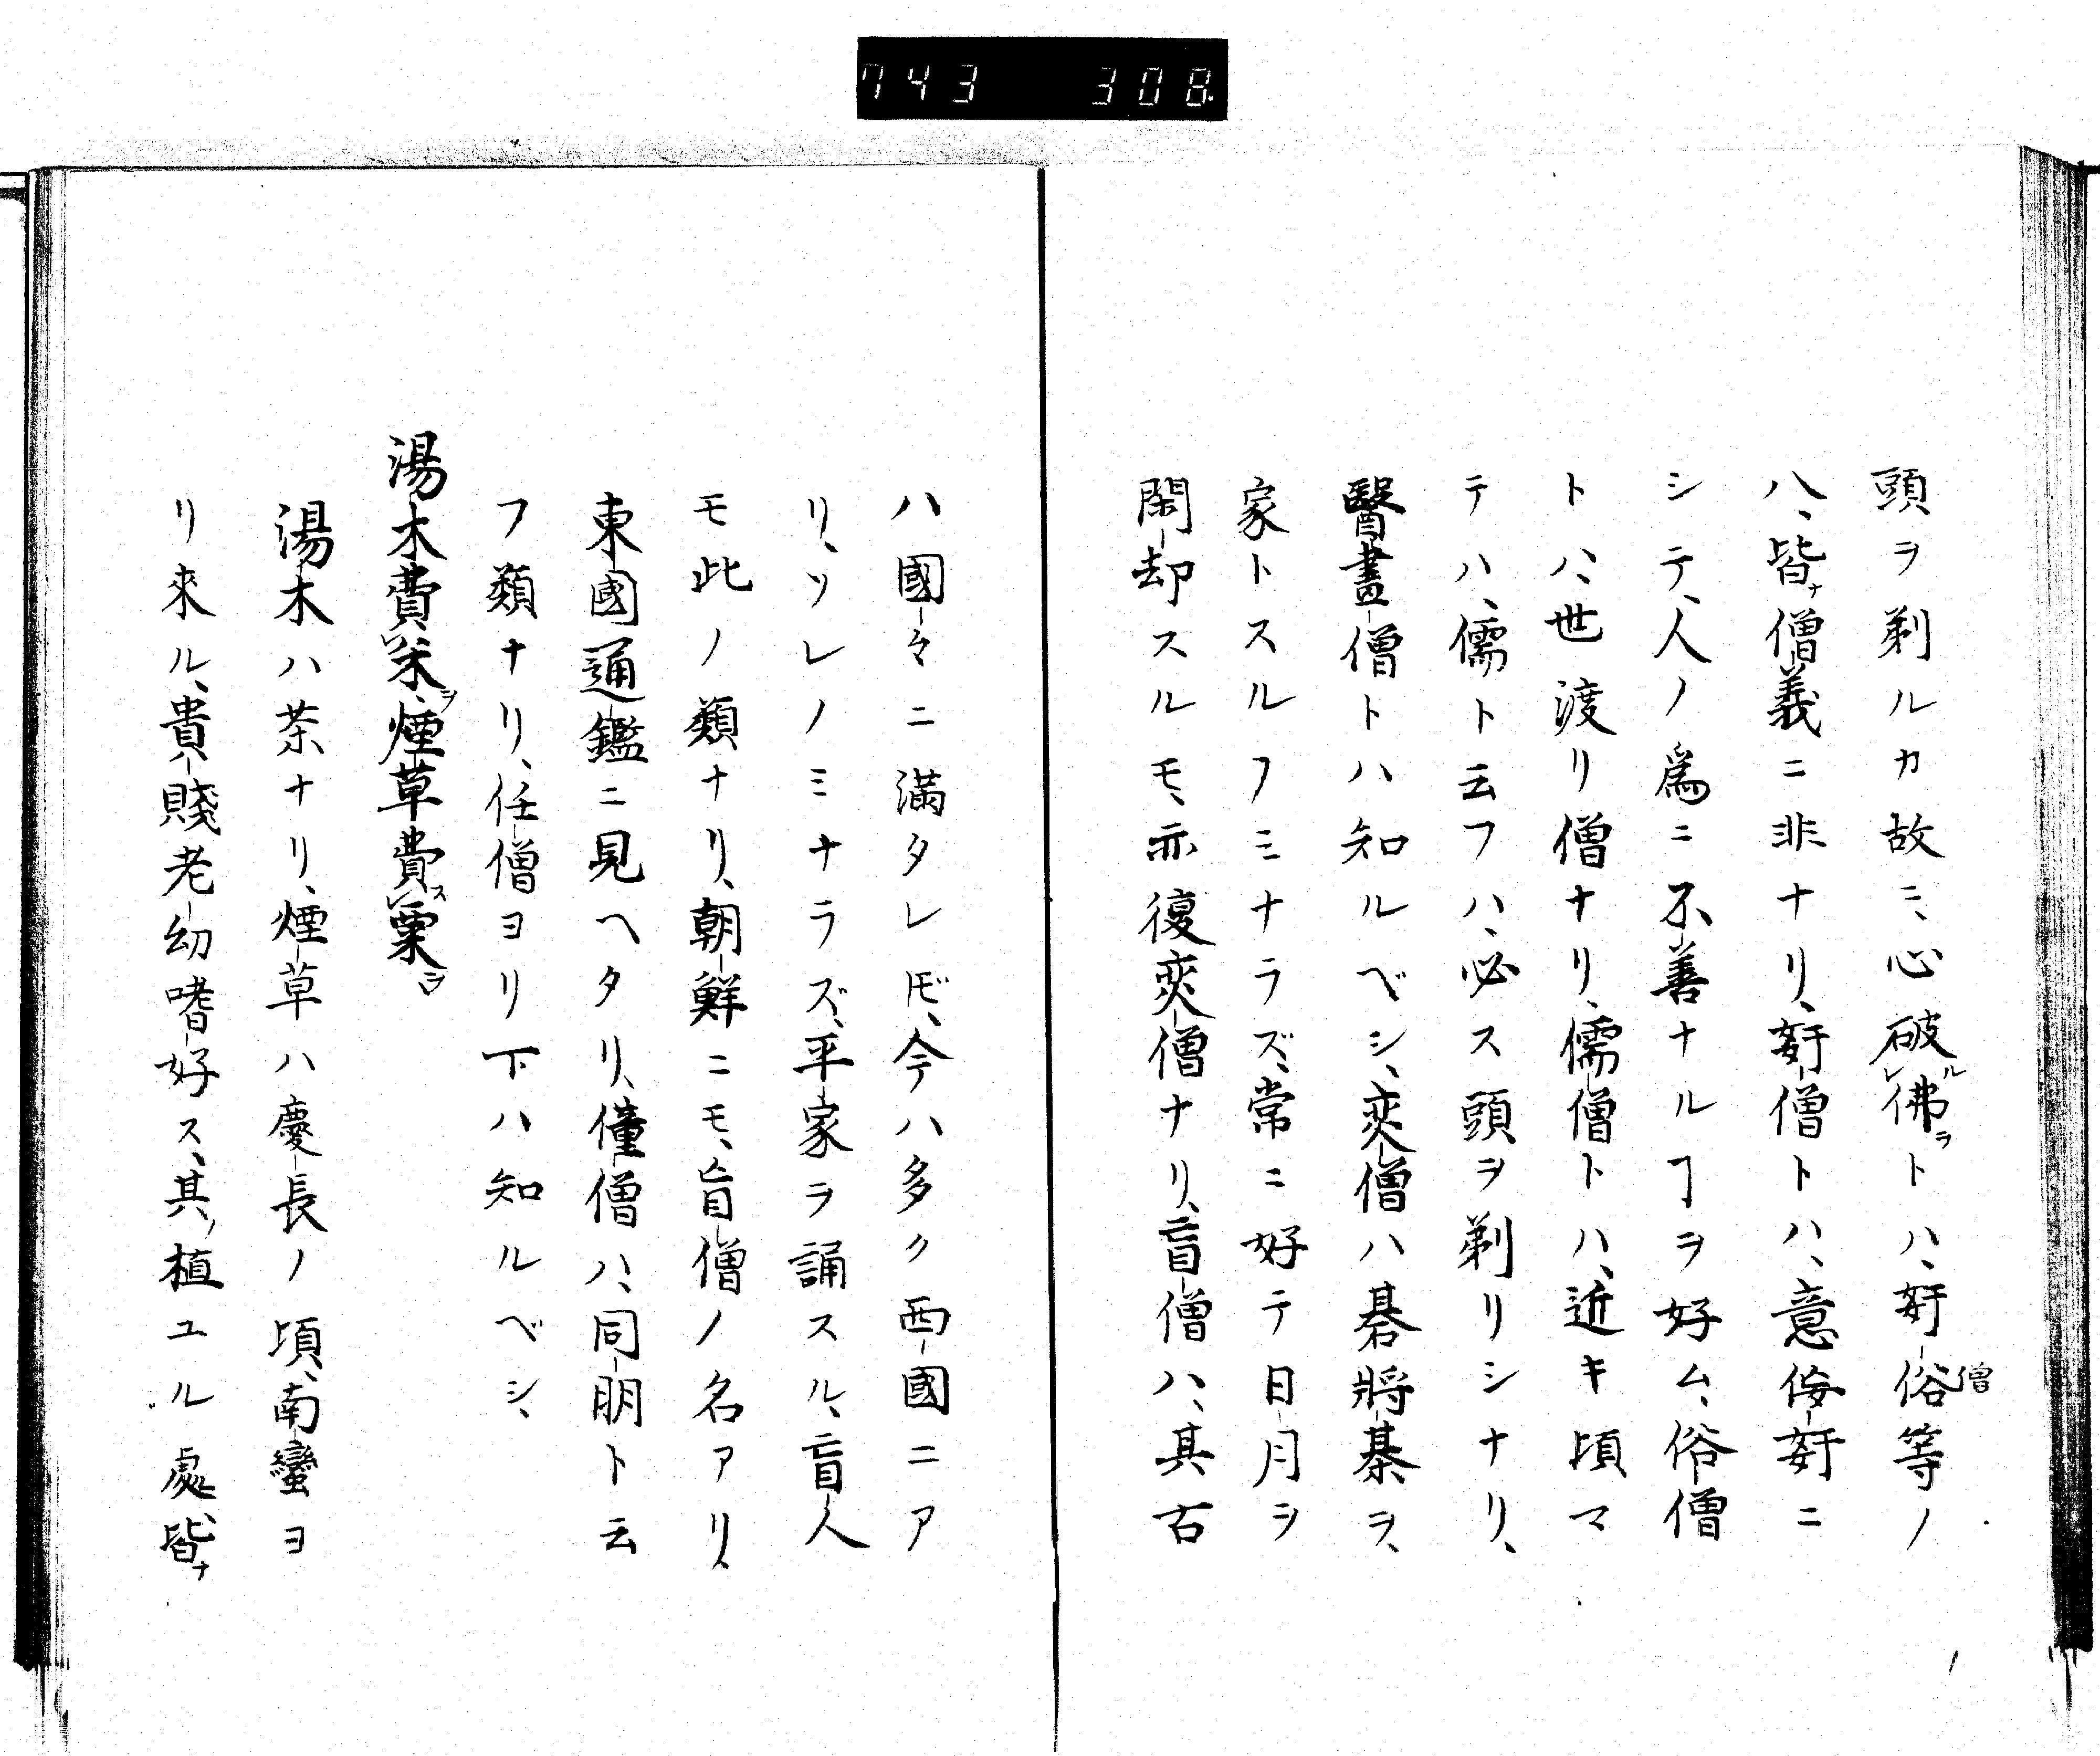 743 308
頭ヲ剃ルカ故ニ、心破ルレ佛ヲトハ、姧俗僧等ノ
八、皆ナ僧義ニ非ナリ、姧僧トハ、意侮姧ニ
シテ、人ノ爲ニ不善ナルヿヲ好ム、俗僧
トハ、世渡リ僧ナリ、儒僧トハ、近キ頃マ
テハ、儒ト云フハ、必ス頭ヲ剃リシナリ、
醫畫僧トハ知ルベシ、奕僧ハ碁將棊ヲ、
家トスルノミナラズ、常ニ好テ日月ヲ
閑却スルモ、亦復奕僧ナリ、盲僧ハ、其古
ハ國々ニ滿タレ𪜈、今ハ多ク西國ニア
リ、ソレノミナラズ、平家ヲ誦スル、盲人
モ此ノ類ナリ、朝鮮ニモ、盲僧ノ名アリ、
東國通鑑ニ見ヘタリ、僮僧ハ、同朋ト云
フ類ナリ、任僧ヨリ下ハ知ルベシ、
湯木費米ヲ、煙草費ス粟ヲ
湯木ハ茶ナリ、煙草ハ慶長ノ頃、南蠻ヨ
リ來ル、貴賤老幼嗜好ス、其ノ植ユル處、皆ナ